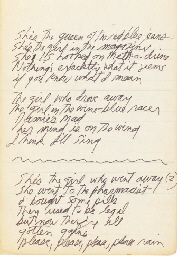 She's the queen of
She's the girl in the magazines
She's hooked on
Nothing's exactly what it seems
if you know what I mean
The girl who drove away
The girl in the wind blue
mad
mind is on the wind
I think I'll sing
She's the girl who went away (2)
She went to the pharmacist
& bought some pills
They used to be legal
but now they're ill
gotten gains
Please, please, please, please rain